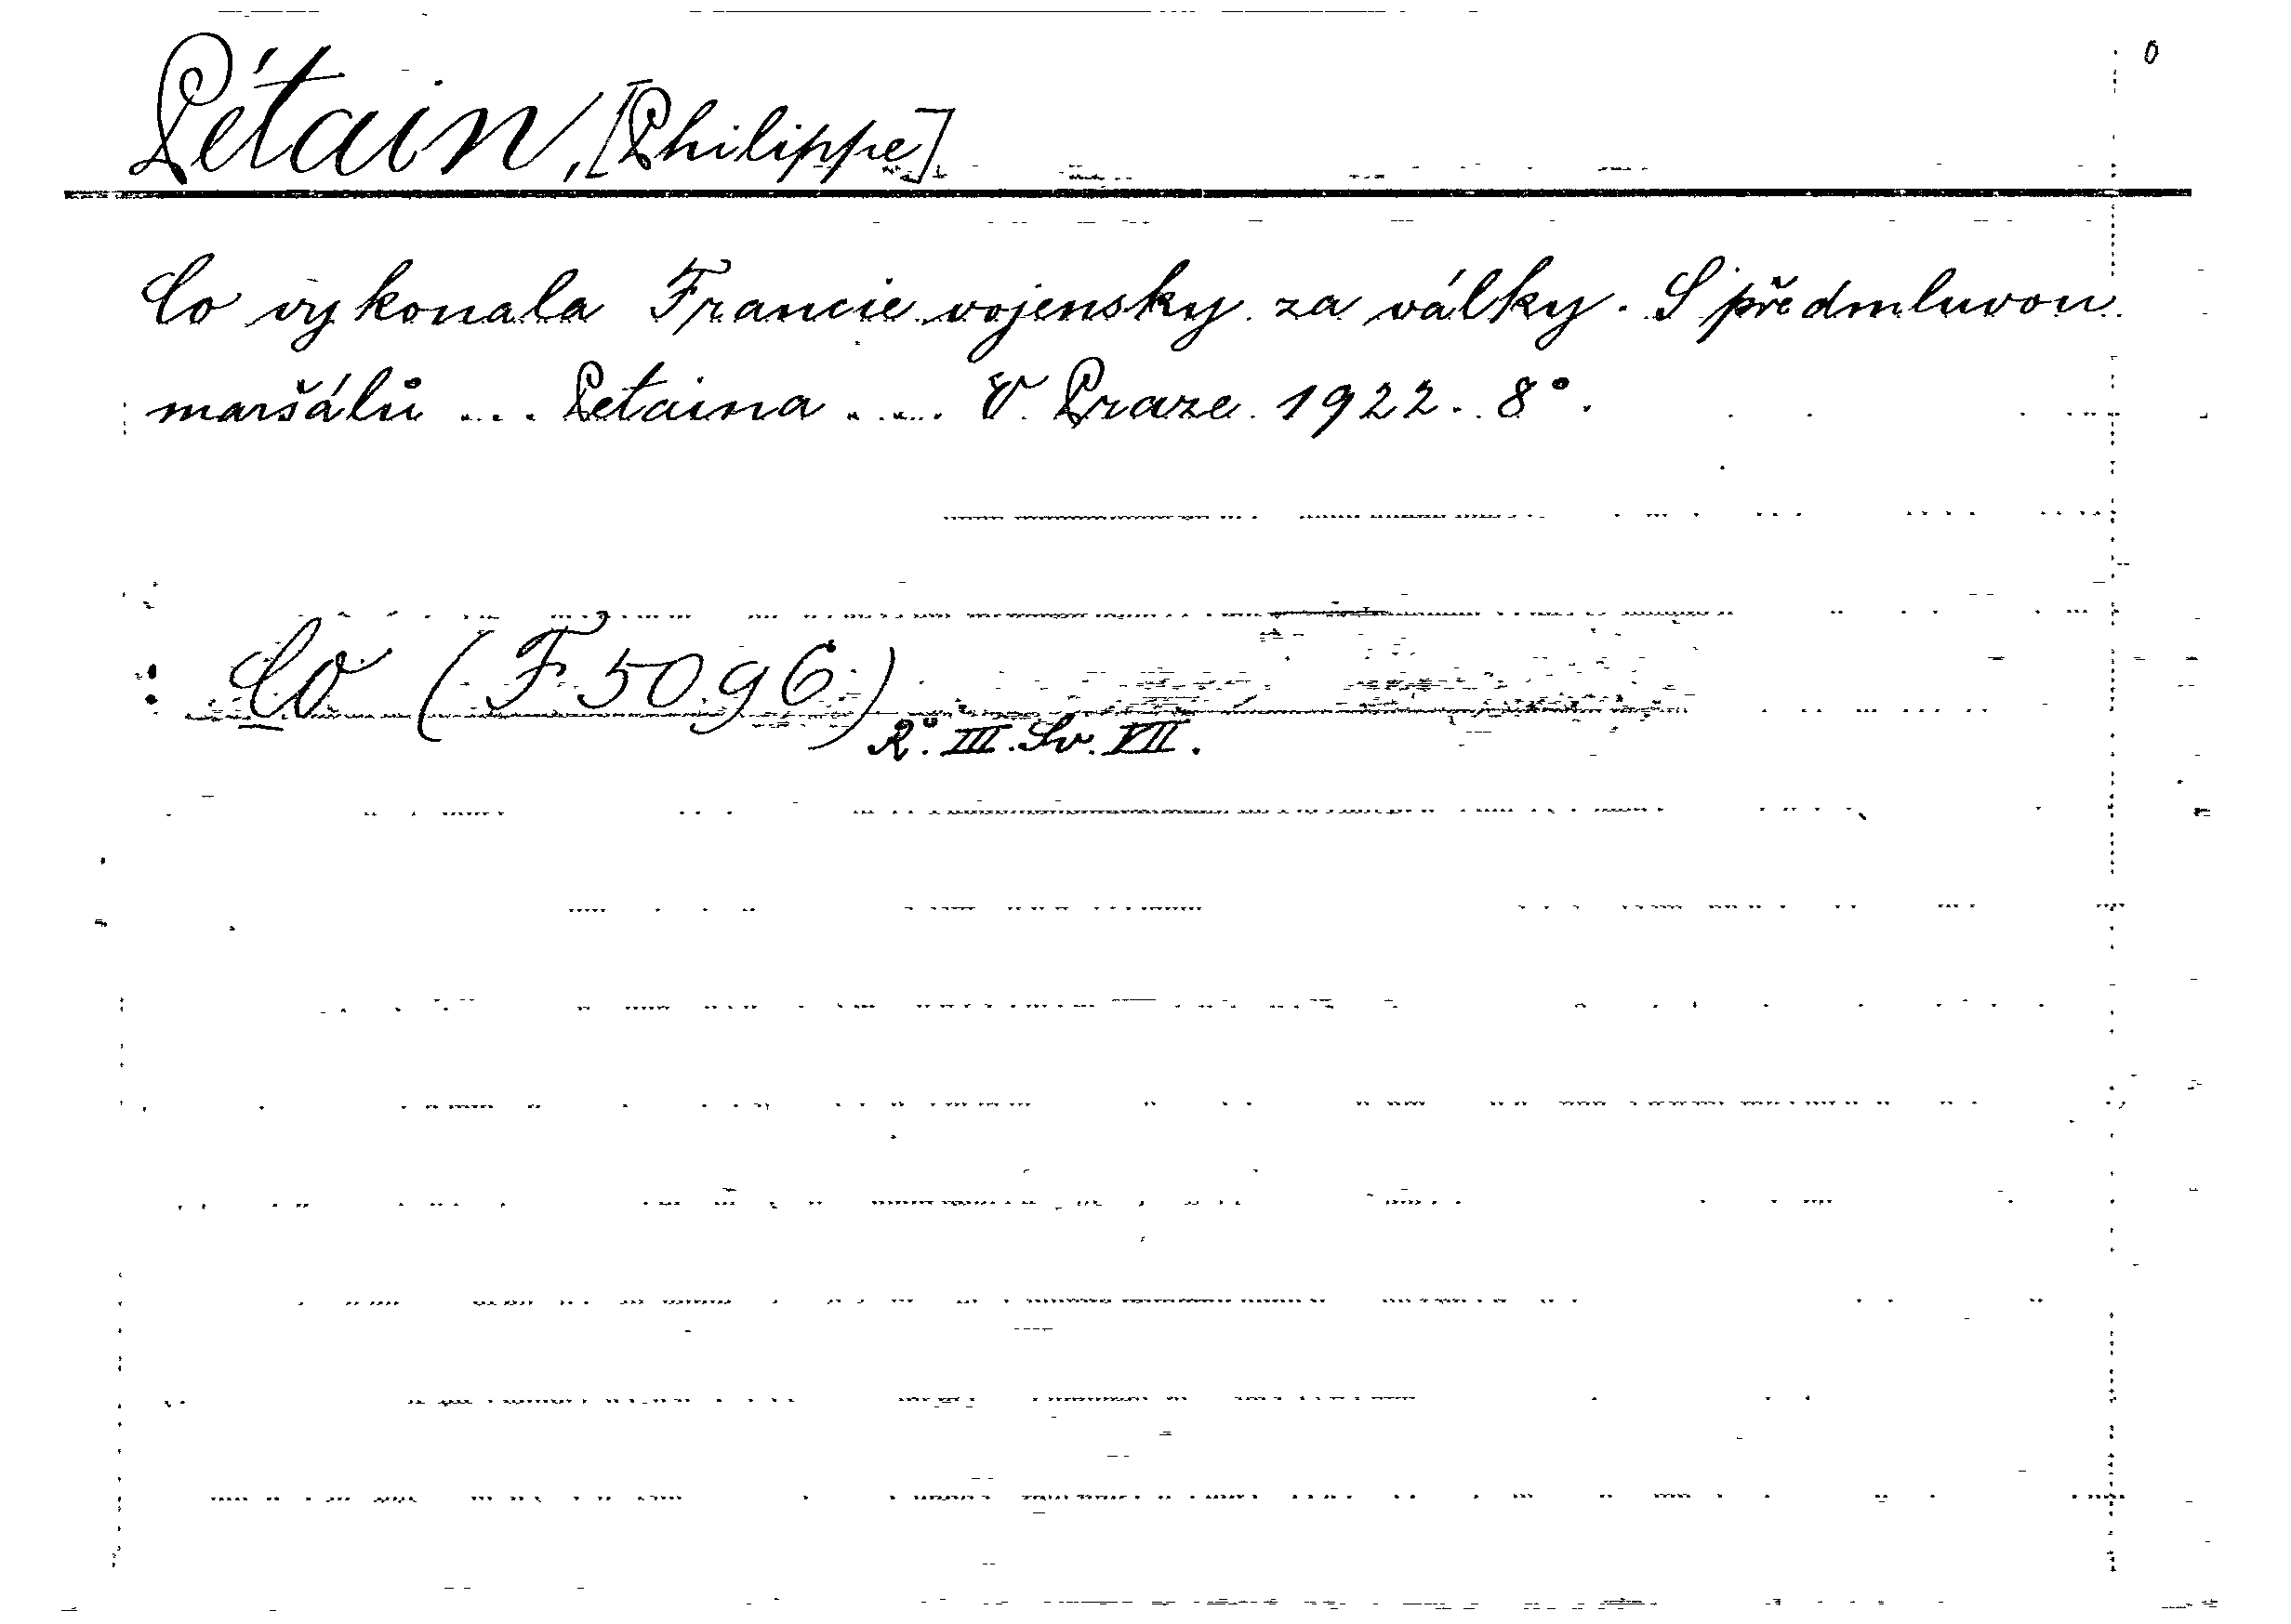 Pétain, [Philippe]
0
Co vykonala Francie vojensky za války. S předmluvou
maršálů ... Petaina .... V Praze 1922. 8°.
Co (F 5096)
R°. III. Sv. VII.